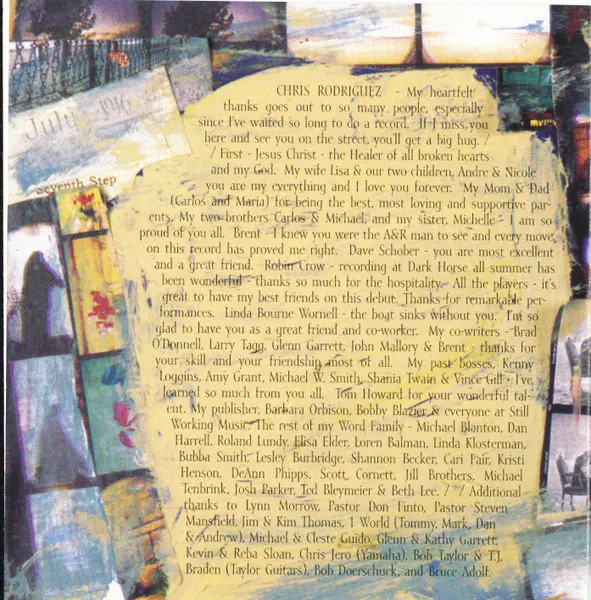 July 1916
Seventh Step
CHRIS RODRIGUEZ - My heartfelt
thanks goes out to so many people, especially
since I've waited so long to do a record. If I miss you
here and see you on the street, you'll get a big hug. /
/ First - Jesus Christ - the Healer of all broken hearts
and my God. My wife Lisa & our two children, Andre & Nicole
you are my everything and I love you forever. My Mom & Dad
(Carlos and Maria) for being the best, most loving and supportive par-
ents, My two brothers Carlos & Michael, and my sister, Michelle - I am so
proud of you all. Brent - I knew you were the A&R man to see and every move
on this record has proved me right. Dave Schober - you are most excellent
and a great friend. Robin Crow - recording at Dark Horse all summer has
been wonderful - thanks so much for the hospitality. All the players - it's
great to have my best friends on this debut. Thanks for remarkable per-
formances. Linda Bourne Wornell - the boat sinks without you. I'm so
glad to have you as a great friend and co-worker. My co-writers - Brad
O'Donnell, Larry Tagg, Glenn Garrett, John Mallory & Brent - thanks for
your skill and your friendship most of all. My past bosses, Kenny
Loggins, Amy Grant, Michael W. Smith, Shania Twain & Vince Gill - I've
learned so much from you all. Tom Howard for your wonderful tal-
ent. My publisher, Barbara Orbison, Bobby Blazier & everyone at Still
Working Music. The rest of my Word Family - Michael Blanton, Dan
Harrell, Roland Lundy, Elisa Elder, Loren Balman, Linda Klosterman,
Bubba Smith, Lesley Burbridge, Shannon Becker, Cari Fair, Kristi
Henson, DeAnn Phipps, Scott Cornett, Jill Brothers, Michael
Tenbrink, Josh Parker, Ted Bleymeier & Beth Lee. / / Additional
thanks to Lynn Morrow, Pastor Don Finto, Pastor Steven
Mansfield, Jim & Kim Thomas, 1 World (Tommy, Mark, Dan
& Andrew), Michael & Cleste Guido, Glenn & Kathy Garrett,
Kevin & Reba Sloan, Chris Jero (Yamaha), Bob Taylor & T.J.
Braden (Taylor Guitars), Bob Doerschuck, and Bruce Adolf.